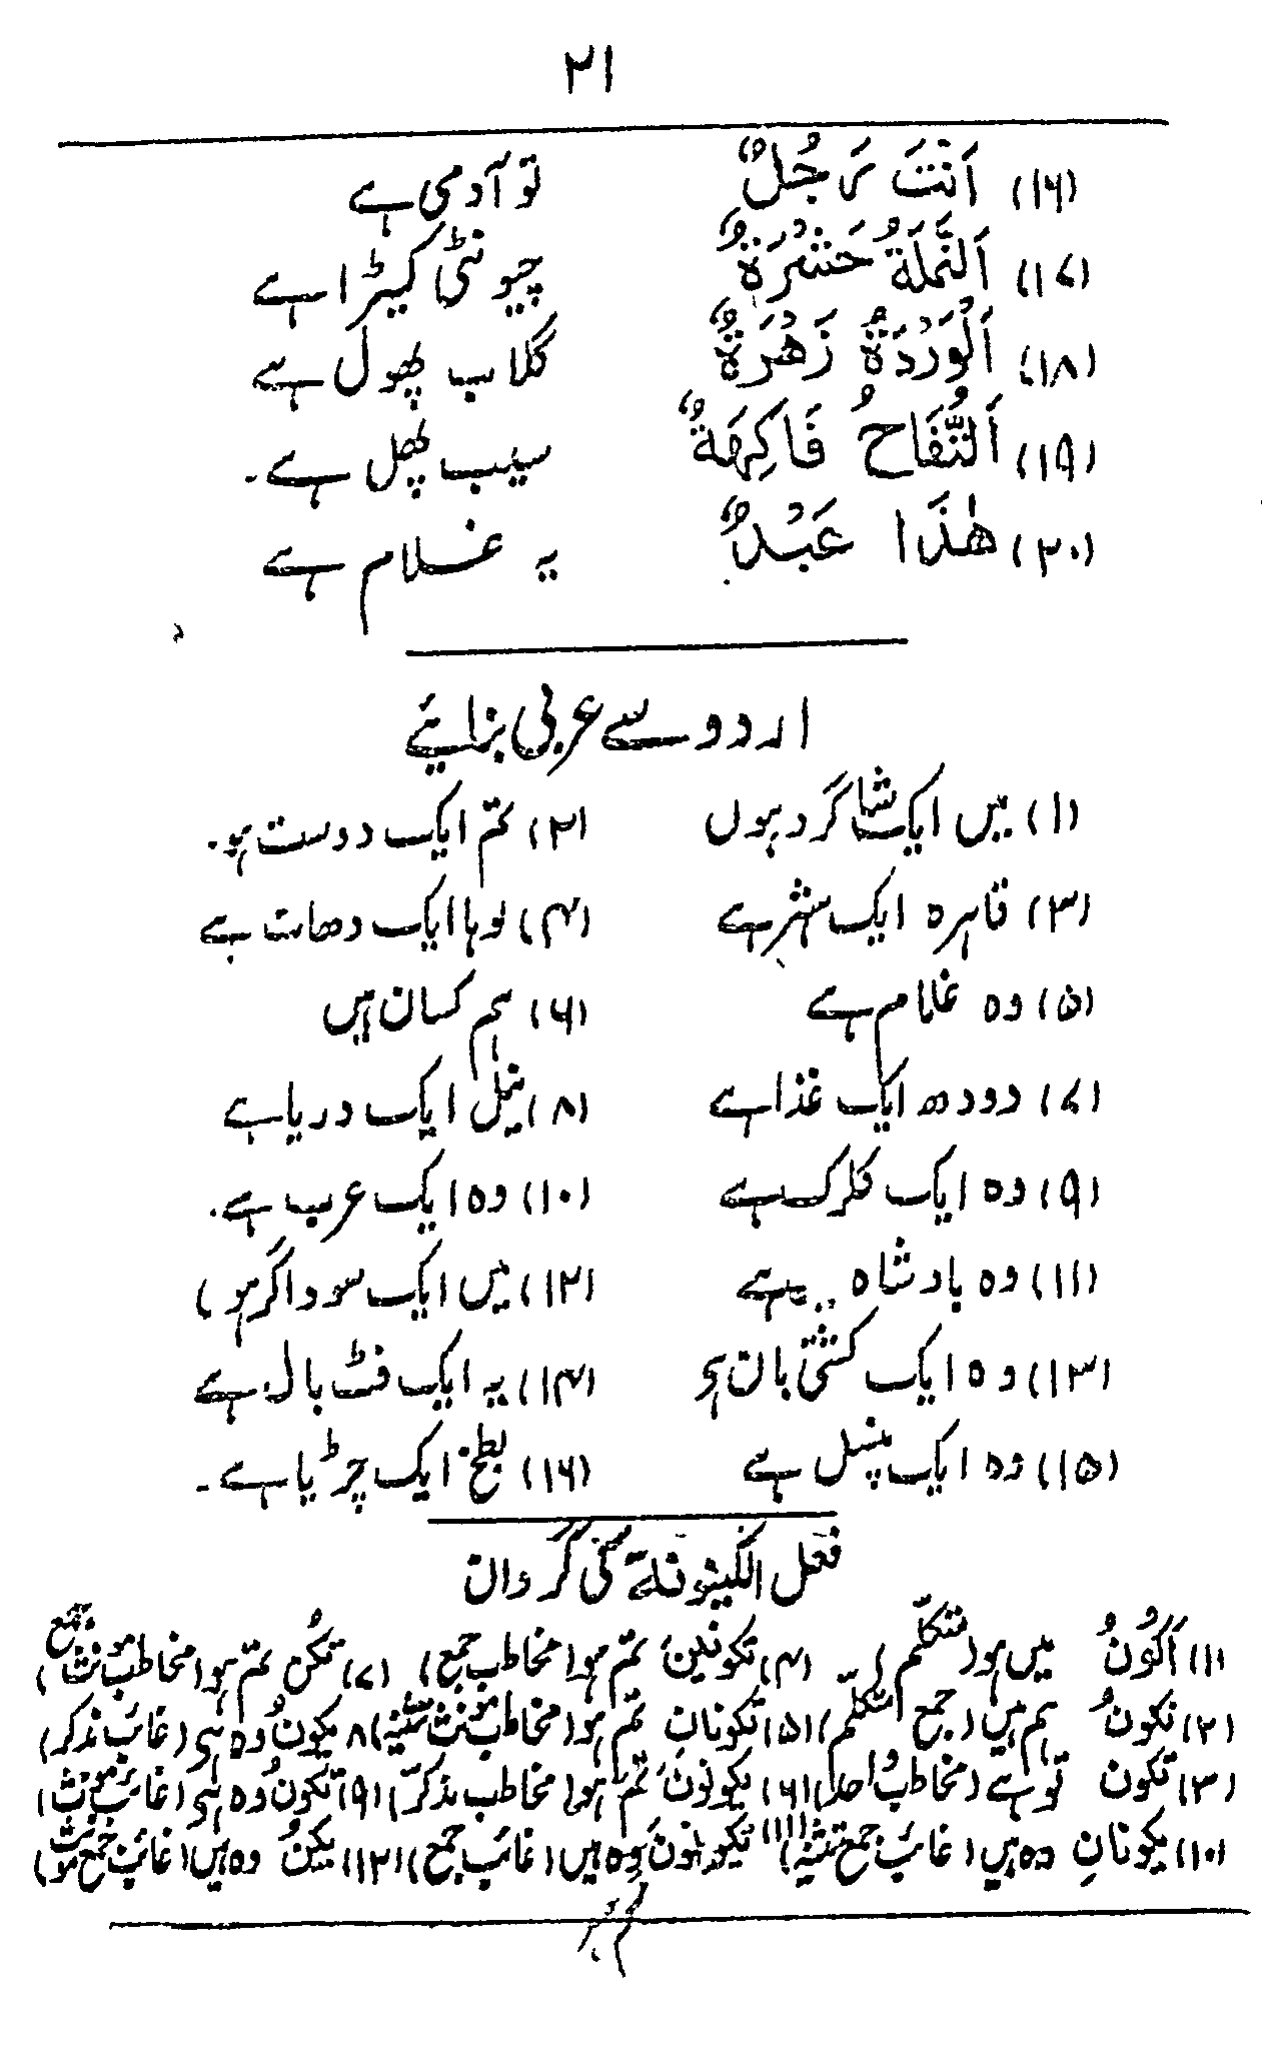 ۲۱
(۱۶) اَنْتَ رَجُلٌ تو آدمی ہے
(۱۷) اَلنَّمْلَةُ حَشْرَةٌ چیونٹی کیڑا ہے
(۱۸) اَلْوَرْدَةُ زَهْرَةٌ گلاب پھول ہے
(۱۹) اَلتُّفَاحُ فَاكِهَةٌ سیب پھل ہے۔
(۲۰) هٰذَا عَبْدٌ یہ غلام ہے
اردو سے عربی بنائیے
(۱) میں ایک شاگرد ہوں (۲) تم ایک دوست ہو۔
(۳) قاہرہ ایک شہر ہے (۴) لوہا ایک دھات ہے
(۵) وہ غلام ہے (۶) ہم کسان ہیں
(۷) دودھ ایک غذا ہے (۸) نیل ایک دریا ہے
(۹) وہ ایک کلرک ہے (۱۰) وہ ایک عرب ہے۔
(۱۱) وہ بادشاہ ہے (۱۲) میں ایک سوداگر ہو)
(۱۳) وہ ایک کشتی بان ہی (۱۴) یہ ایک فٹ بال ہے
(۱۵) وہ ایک پنسل ہے (۱۶) بطخ ایک چڑیا ہے۔
فعل الکینونة کی گردان
(۱) اَکُوْنُ میں ہو (متکلّم) (۴) تکونین تم ہو (مخاطب جمع) (۷) تکُن تم ہو (مخاطب مونث جمع)
(۲) نکونُ ہم ہیں (جمع متکلّم) (۵) تکونانِ تم ہو (مخاطب مونث تثنیہ) ۸ یکونُ وہ ہی (غائب مذکر)
(۳) تکون تو ہے (مخاطب واحد) (۶) یکونونَ تم ہو (مخاطب مذکر) (۹) تکونُ وہ ہی (غائب مونث)
(۱۰) یکونانِ وہ ہیں (غائب جمع تثنیہ) (۱۱) تکونونَ وہ ہیں (غائب جمع) (۱۲) یکنُ وہ ہیں (غائب جمع مونث)